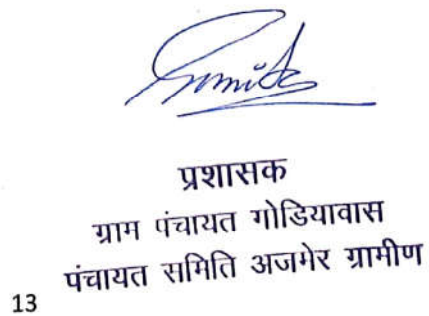 प्रशासक
ग्राम पंचायत गोडियावास
पंचायत समिति अजमेर ग्रामीण
13